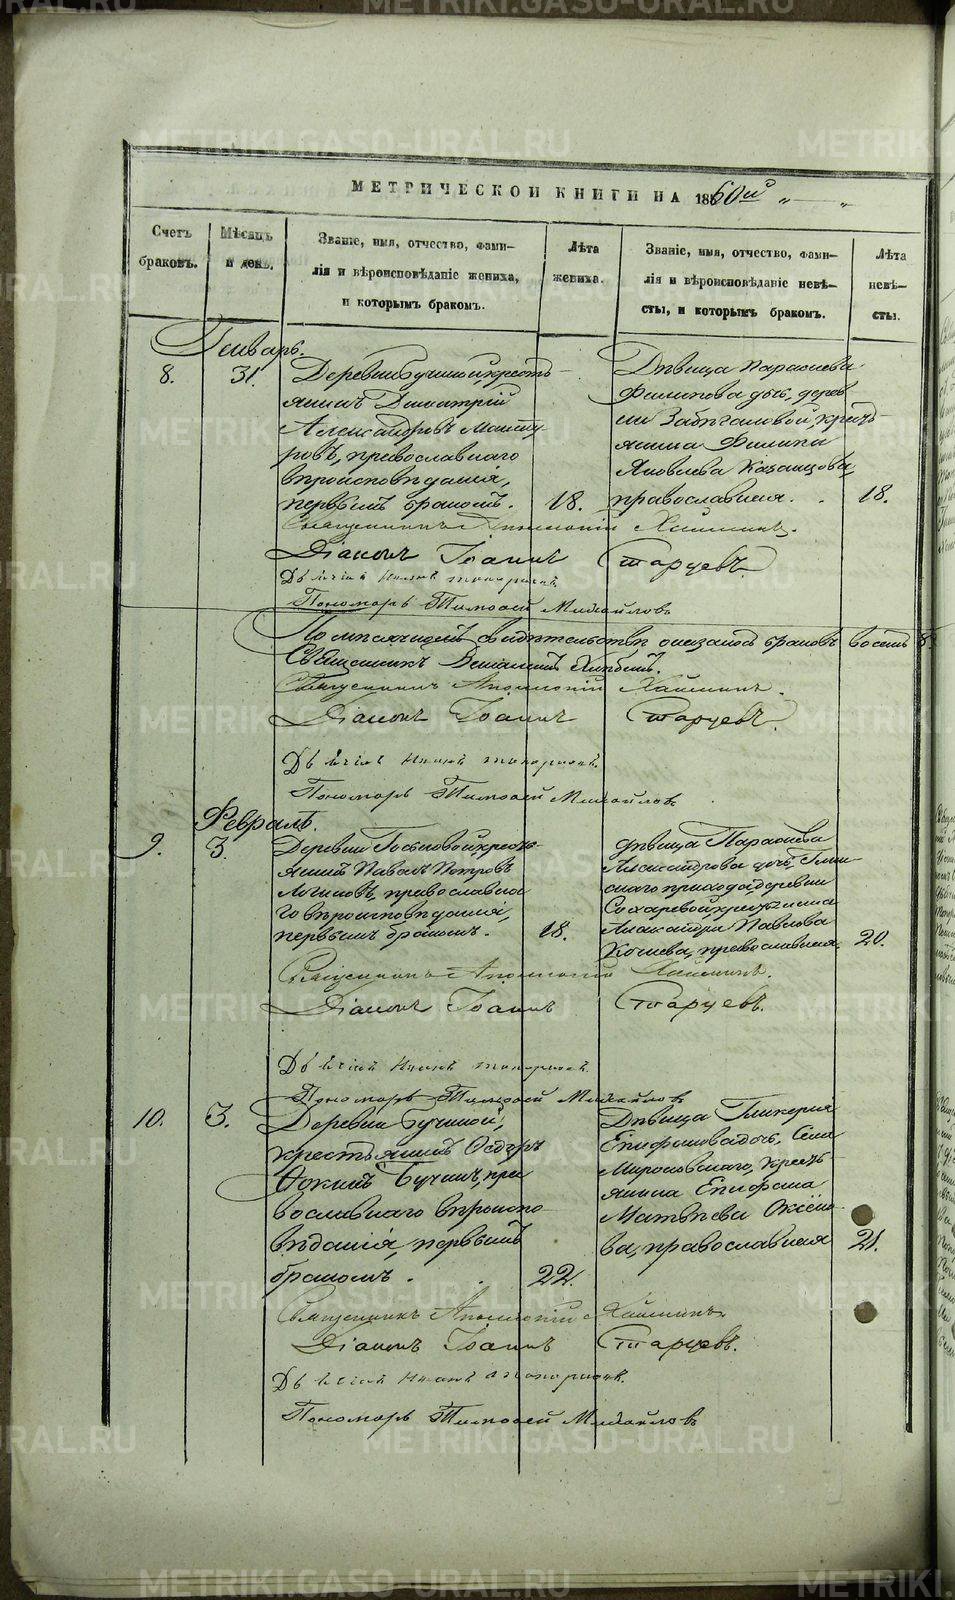 МЕТРИЧЕСКОЙ КНИГИ НА 1860й
Счетъ браковъ.
Мѣсяцъ и день.
Званіе, имя, отчество, фами-
лія и вѣроисповѣданіе жениха,
и которымъ бракомъ.
Лѣта жениха.
Званіе, имя, отчество, фами-
лія и вѣроисповѣданіе невѣ-
сты, и которымъ бракомъ.
Лѣта невѣ-
сты.
Январь.
8.
31.
Деревни Бучиной, кресть-
янинъ Димитрій
Александровъ
ровъ, православнаго
вѣроисповѣданія,
первымъ бракомъ.
18.
Дѣвица Параскева
Филипова дочь, дерев
ни крестъ
янина Филипа
Яковлева Казанцова,
православная.
18.
Священникъ Хаймин
Діаконъ Іоаннъ Старцевъ
Пономарь Тимоѳей Михайловъ
По мѣсячномъ свидѣтельствѣ оказалось браковъ восемь 8.
Священникъ
Священникъ
Діаконъ Іоаннъ Старцевъ
Пономарь Тимоѳей Михайловъ
Февраль.
9.
3.
Деревни кресть
янинъ Павелъ Петровъ
Логиновъ, православна
го вѣроисповѣданія,
первымъ бракомъ.
18.
Дѣвица Параскева
Александрова дочь,
скаго прихода деревни
Сохаревой крестьянина
Александра Павлова
православная.
20.
Священникъ
Діаконъ Іоаннъ Старцевъ.
Пономарь Тимоѳей Михайловъ
10.
3.
Деревни Бучиной,
крестьянинъ Ѳедоръ
Ѳокинъ Бучинъ, пра
вославнаго вѣроиспо-
вѣданія, первымъ
бракомъ.
22.
Дѣвица Гликерія
Епифанова дочь, Села
Мироновскаго, кресть
янина Епифана
Матвѣева
ва, православная
21.
Священникъ
Діаконъ Іоаннъ Старцевъ.
Пономарь Тимоѳей Михайловъ
METRIKI.GASO-URAL.RU